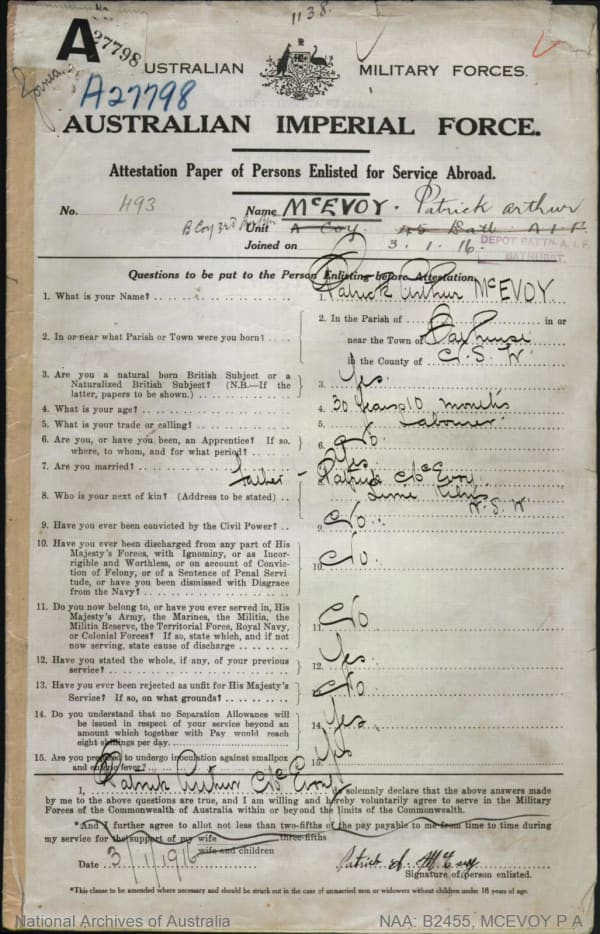 1138.
A 27798
A27798
AUSTRALIAN MILITARY FORCES.
AUSTRALIAN IMPERIAL FORCE.
Attestation Paper of Persons Enlisted for Service Abroad.
No. 493 Name McEVOY. Patrick Arthur
B Coy 3rd Unit A Coy 45 Batt. A.I.F.
Joined on 3.1.16.
DEPOT BATTN. A.I.F.
BATHURST.
Questions to be put to the Person Enlisting before Attestation.
1. What is your Name? 1. Patrick Arthur McEVOY.
2. In or near what Parish or Town were you born? 2. In the Parish of in or
near the Town of
in the County of N.S.W.
3. Are you a natural born British Subject or a
Naturalized British Subject? (N.B.—If the
latter, papers to be shown.) 3. Yes.
4. What is your age? 4. 30 years 10 months
5. What is your trade or calling? 5. Labourer.
6. Are you, or have you been, an Apprentice? If so,
where, to whom, and for what period? 6. No
7. Are you married? Yes
8. Who is your next of kin? (Address to be stated) father - Patrick McEvoy
Lime Kilns
N.S.W
9. Have you ever been convicted by the Civil Power? 9. No.
10. Have you ever been discharged from any part of His
Majesty's Forces, with Ignominy, or as Incor-
rigible and Worthless, or on account of Convic-
tion of Felony, or of a Sentence of Penal Servi
tude, or have you been dismissed with Disgrace
from the Navy? 10. No.
11. Do you now belong to, or have you ever served in, His
Majesty's Army, the Marines, the Militia, the
Militia Reserve, the Territorial Force, Royal Navy,
or Colonial Forces? If so, state which, and if not
now serving, state cause of discharge 11. No
12. Have you stated the whole, if any, of your previous
service? 12. Yes
13. Have you ever been rejected as unfit for His Majesty's
Service? If so, on what grounds? 13. No
14. Do you understand no Separation Allowance will
be issued in respect of your service beyond an
amount which together with Pay would reach
eight shillings per day. 14. Yes.
15. Are you prepared to undergo inoculation against smallpox
and enteric fever? 15. Yes
I, Patrick Arthur McEvoy do solemnly declare that the above answers made
by me to the above questions are true, and I am willing and hereby voluntarily agree to serve in the Military
Forces of the Commonwealth of Australia within or beyond the limits of the Commonwealth.
*And I further agree to allot not less than two-fifths of the pay payable to me from time to time during
three-fifths
my service for the support of my wife
wife and children
Date 3/1/1916 Patrick A. McEvoy
Signature of person enlisted.
*This clause to be amended where necessary and should be struck out in the case of unmarried men or widowers without children under 18 years of age.
National Archives of Australia NAA: B2455, MCEVOY P A